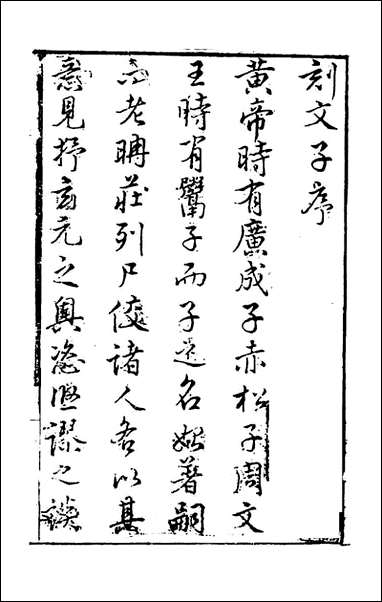 刻文子序
黃帝時有廣成子赤松子周文
王時有鬻子而子之名始著嗣
六老聃莊列尸佼諸人各以其
意見抒玄元之奧恣謬之談